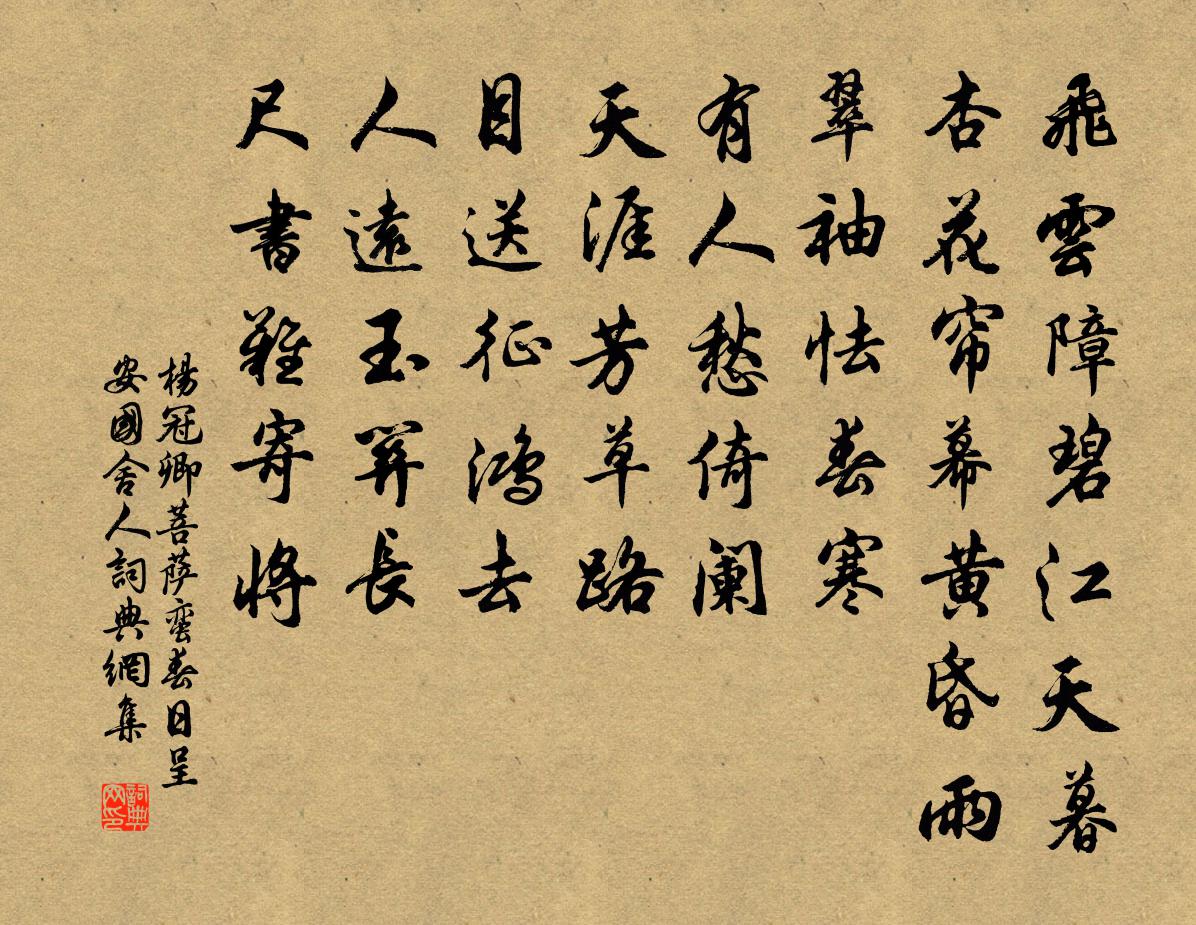 飛雲障碧江天暮
杏花帘幕黄昏雨
翠袖怯春寒
有人愁倚阑
天涯芳草路
目送征鴻去
人遠玉關長
尺書難寄將
楊冠卿菩薩蛮春日呈
安國舍人詞典網集
詞典
网印